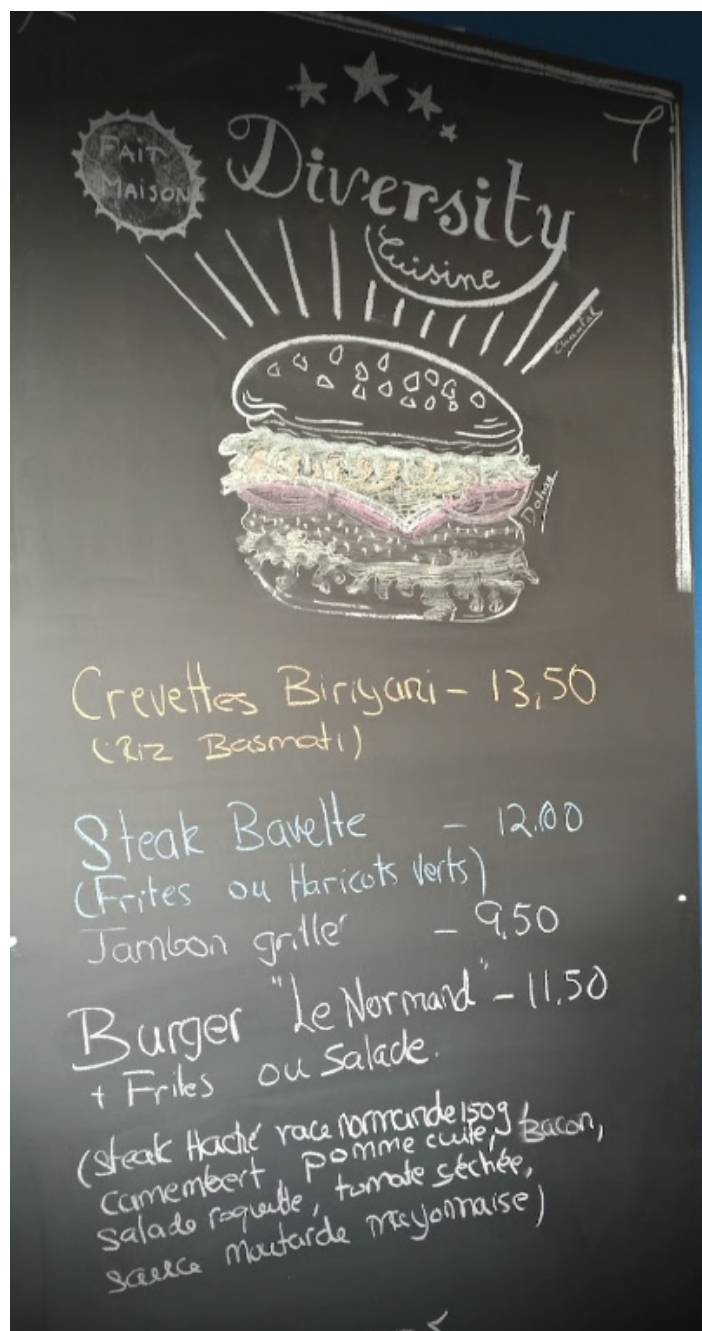 FAIT
MAISON
Diversity
Cuisine
Chantal
Crevettes Biriyani - 13,50
(Riz Basmati)
Steak Bavette - 12.00
(Frites ou Haricots verts)
Jambon griller - 9.50
Burger "Le Normand" - 11.50
+ Frites ou Salade.
(Steak Haché race normande 150g, bacon,
camembert, pomme cuite,
salade roquette, tomate séchée,
sauce moutarde mayonnaise)